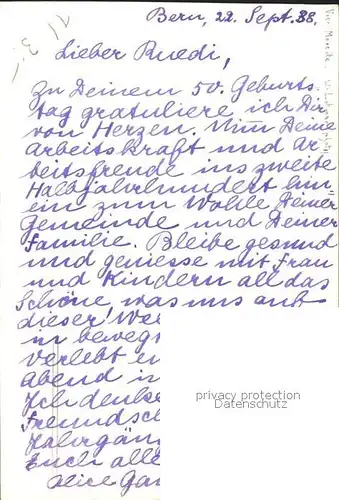 Bern, 22. Sept. 88.
Lieber Ruedi,
Zu Deinem 50. Geburts
tag gratuliere ich Dir
von Herzen. Nimm Deine
Arbeitskraft und Ar
beitsfreude ins zweite
Halbjahrhundert hin
ein zum Wohle Deiner
Gemeinde und Deiner
Familie. Bleibe gesund
und geniesse mit Frau
und Kindern all das
Schöne was uns auf
dieser Wel
in bewegt
verlebt
Abend in
Ich denke
Freundsch
Jahrgän
Euch alle
Alice Gar
privacy protection
Datenschutz